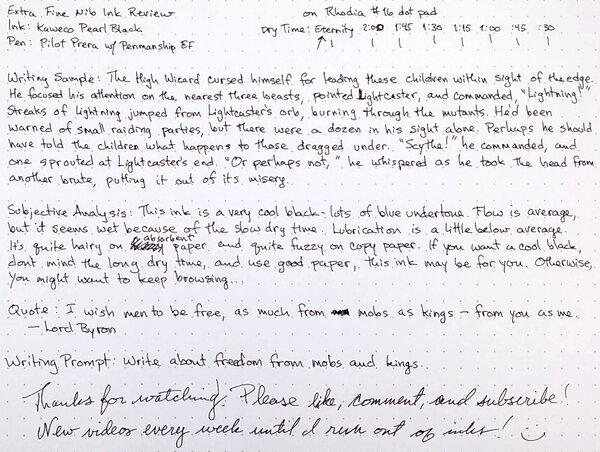 Extra Fine Nib Ink Review on Rhodia #16 dot pad
Ink: Kaweco Pearl Black Dry Time: Eternity 2:00 1:45 1:30 1:15 1:00 :45 :30
Pen: Pilot Prera w/ Penmanship EF
Writing Sample: The High Wizard cursed himself for leading these children within sight of the edge.
He focused his attention on the nearest three beasts, pointed Lightcaster, and commanded, "Lightning!"
Streaks of lightning jumped from Lightcaster's orb, burning through the mutants. He'd been
warned of small raiding parties, but there were a dozen in his sight alone. Perhaps he should
have told the children what happens to those dragged under. "Scythe!" he commanded, and
one sprouted at Lightcaster's end. "Or perhaps not," he whispered as he took the head from
another brute, putting it out of its misery.
Subjective Analysis: This ink is a very cool black - lots of blue undertone. Flow is average,
but it seems wet because of the slow dry time. Lubrication is a little below average.
It's quite hairy on absorbent paper and quite fuzzy on copy paper. If you want a cool black,
don't mind the long dry time, and use good paper, this ink may be for you. Otherwise,
you might want to keep browsing...
Quote: I wish men to be free, as much from mobs as kings - from you as me.
- Lord Byron
Writing Prompt: Write about freedom from mobs and kings.
Thanks for watching! Please like, comment, and subscribe!
New videos every week until I run out of inks!